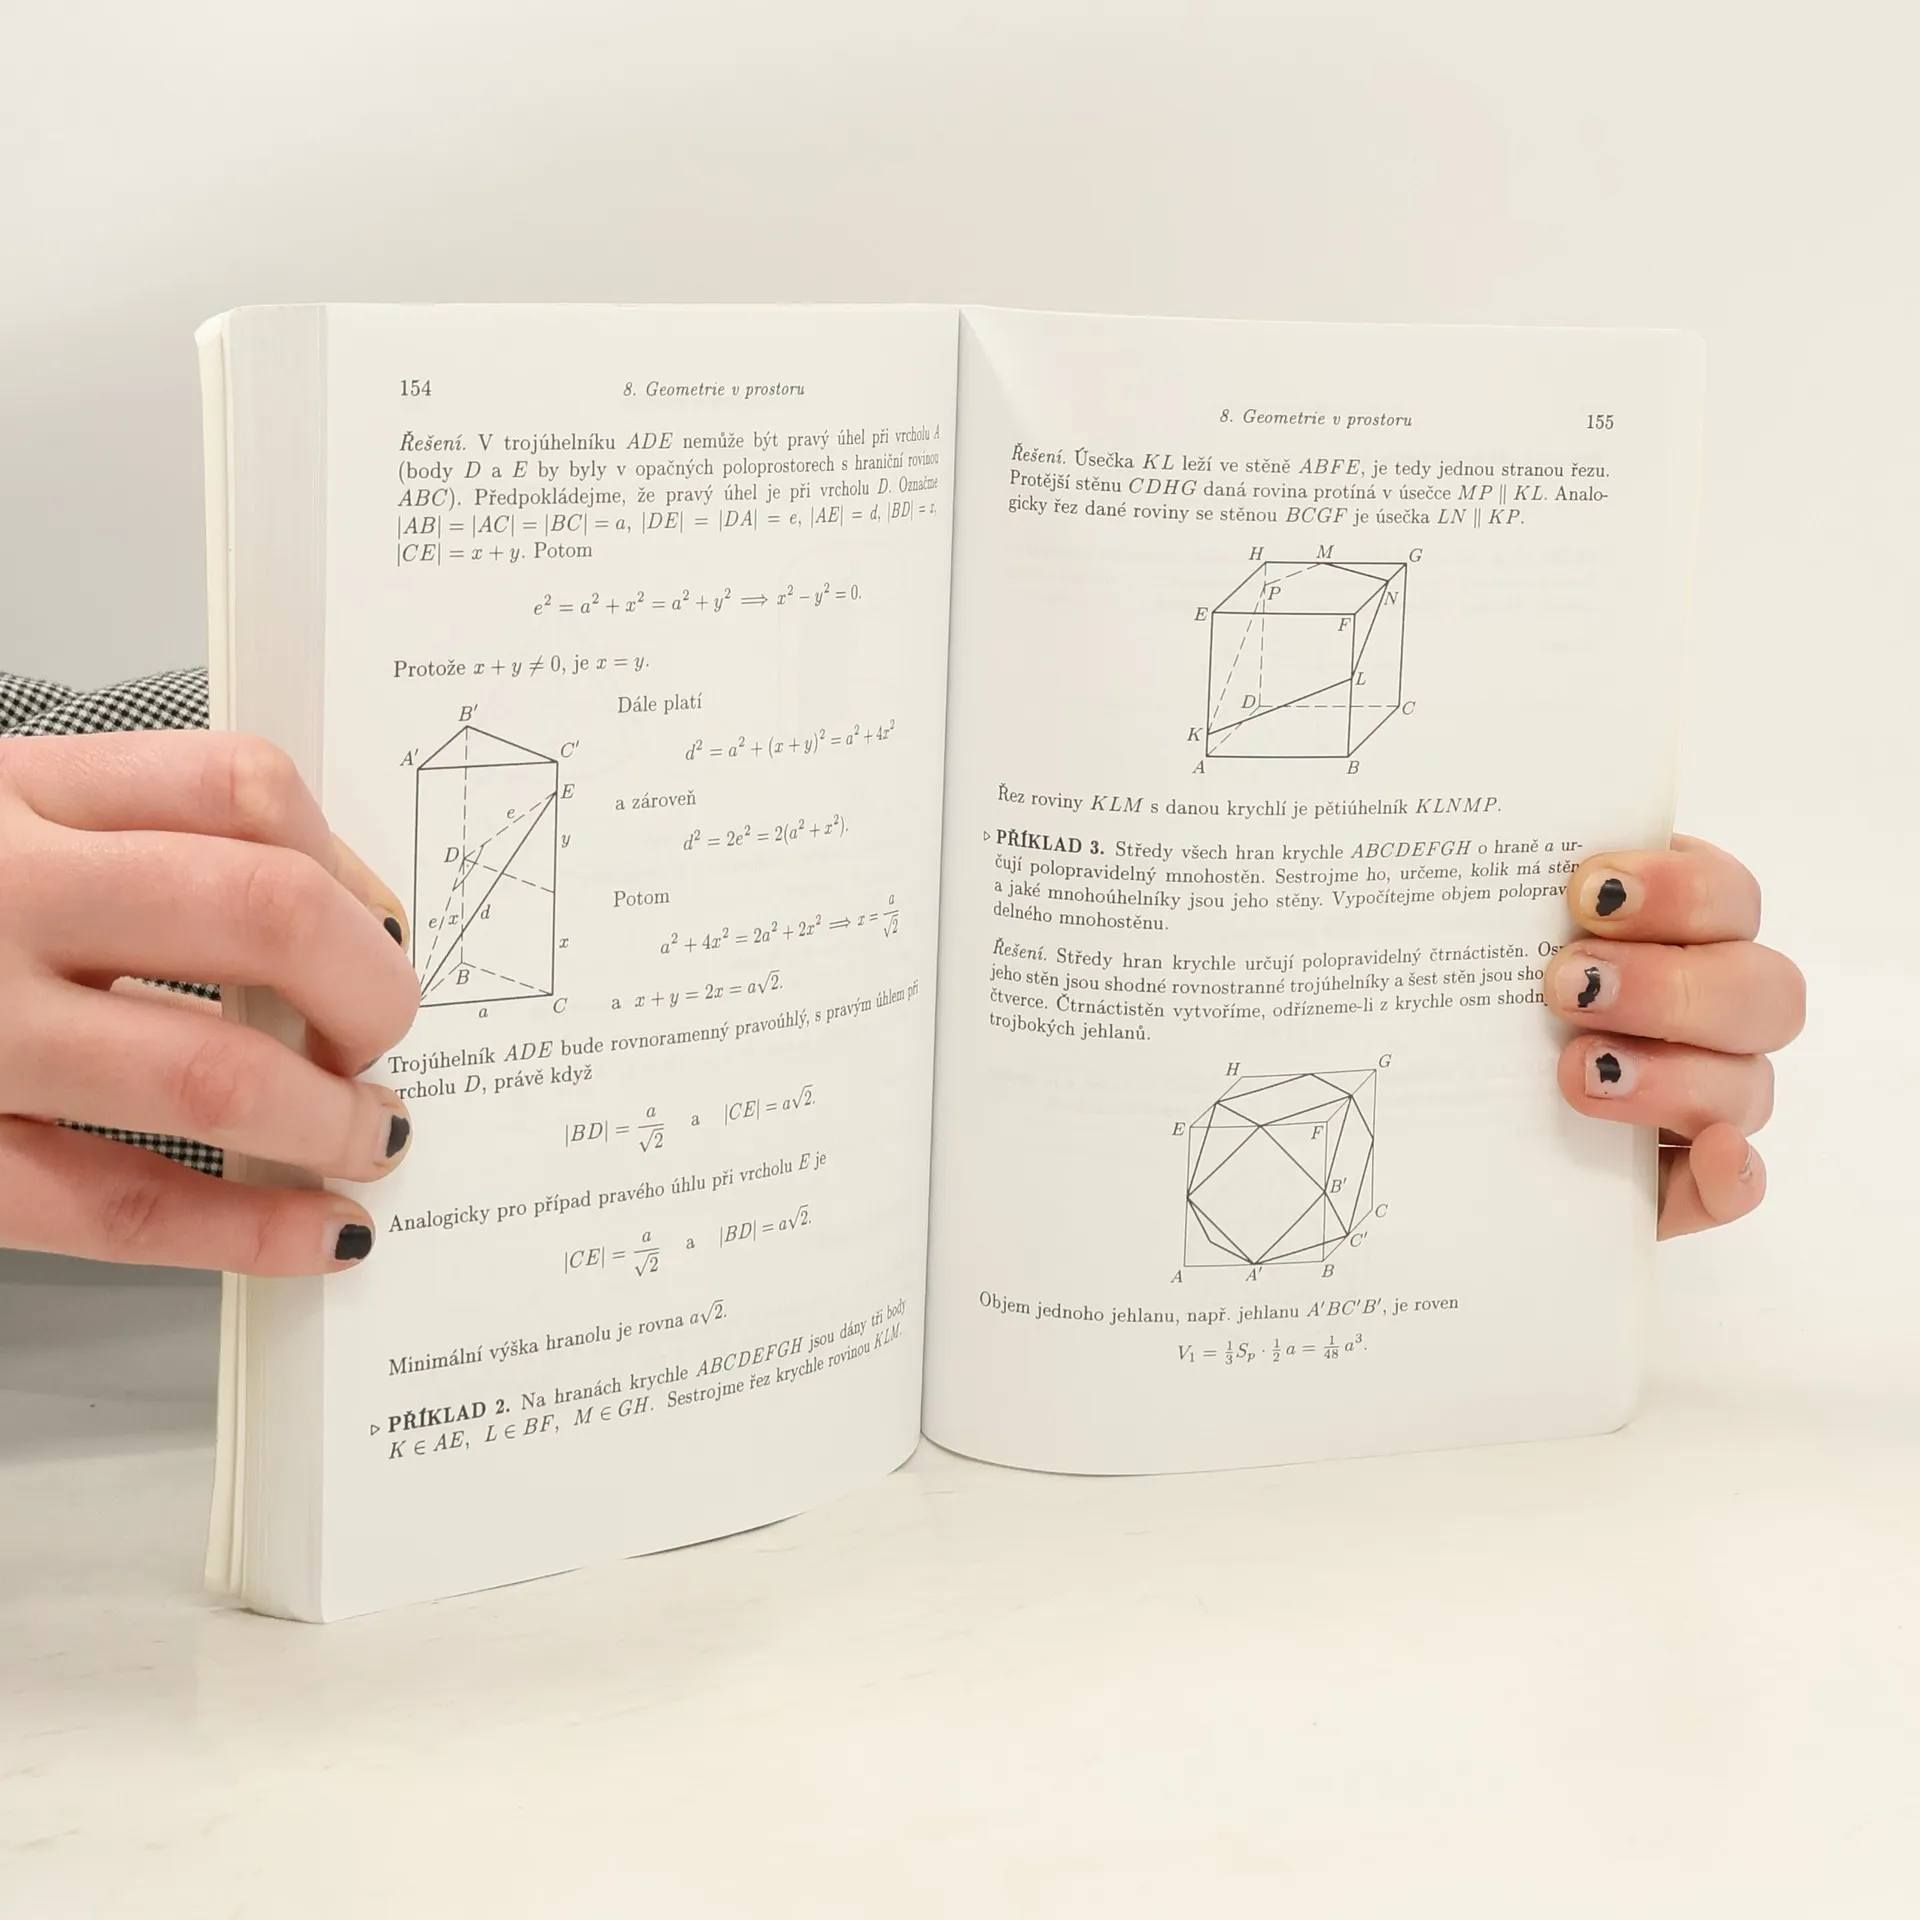 154
8. Geometrie v prostoru
Řešení. V trojúhelníku ADE nemůže být pravý úhel při vrcholu A
(body D a E by byly v opačných poloprostorech s hraniční rovinou
ABC). Předpokládejme, že pravý úhel je při vrcholu D. Označme
|AB| = |AC| = |BC| = a, |DE| = |DA| = e, |AE| = d, |BD| = x,
|CE| = x + y. Potom
e² = a² + x² = a² + y² ⟹ x² − y² = 0.
Protože x + y ≠ 0, je x = y.
B′
A′
C′
E
e
y
D
e
x
d
x
B
a
C
Dále platí
d² = a² + (x + y)² = a² + 4x²
a zároveň
d² = 2e² = 2(a² + x²).
Potom
a² + 4x² = 2a² + 2x² ⟹ x = a/√2
a x + y = 2x = a√2.
Trojúhelník ADE bude rovnoramenný pravoúhlý, s pravým úhlem při
vrcholu D, právě když
|BD| = a/√2 a |CE| = a√2.
Analogicky pro případ pravého úhlu při vrcholu E je
|CE| = a/√2 a |BD| = a√2.
Minimální výška hranolu je rovna a√2.
▷ PŘÍKLAD 2. Na hranách krychle ABCDEFGH jsou dány tři body
K ∈ AE, L ∈ BF, M ∈ GH. Sestrojme řez krychle rovinou KLM.
8. Geometrie v prostoru
155
Řešení. Úsečka KL leží ve stěně ABFE, je tedy jednou stranou řezu.
Protější stěnu CDHG daná rovina protíná v úsečce MP ∥ KL. Analo-
gicky řez dané roviny se stěnou BCGF je úsečka LN ∥ KP.
H
M
G
P
N
E
F
L
D
C
K
A
B
Řez roviny KLM s danou krychlí je pětiúhelník KLNMP.
▷ PŘÍKLAD 3. Středy všech hran krychle ABCDEFGH o hraně a ur-
čují polopravidelný mnohostěn. Sestrojme ho, určeme, kolik má stěn
a jaké mnohoúhelníky jsou jeho stěny. Vypočítejme objem poloprav
delného mnohostěnu.
Řešení. Středy hran krychle určují polopravidelný čtrnáctistěn. Os
jeho stěn jsou shodné rovnostranné trojúhelníky a šest stěn jsou sho
čtverce. Čtrnáctistěn vytvoříme, odřízneme-li z krychle osm shodn
trojbokých jehlanů.
H
G
E
F
B′
C
C′
A
A′
B
Objem jednoho jehlanu, např. jehlanu A′BC′B′, je roven
V₁ = ⅓Sₚ · ½ a = 1/48 a³.